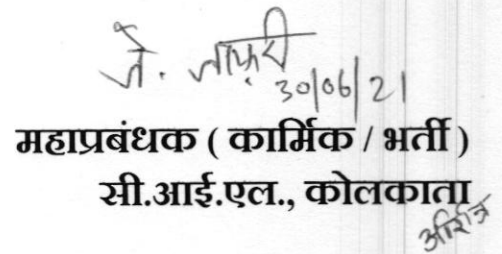 जे. जाफ़री
30/06/21
महाप्रबंधक ( कार्मिक / भर्ती )
सी.आई.एल., कोलकाता